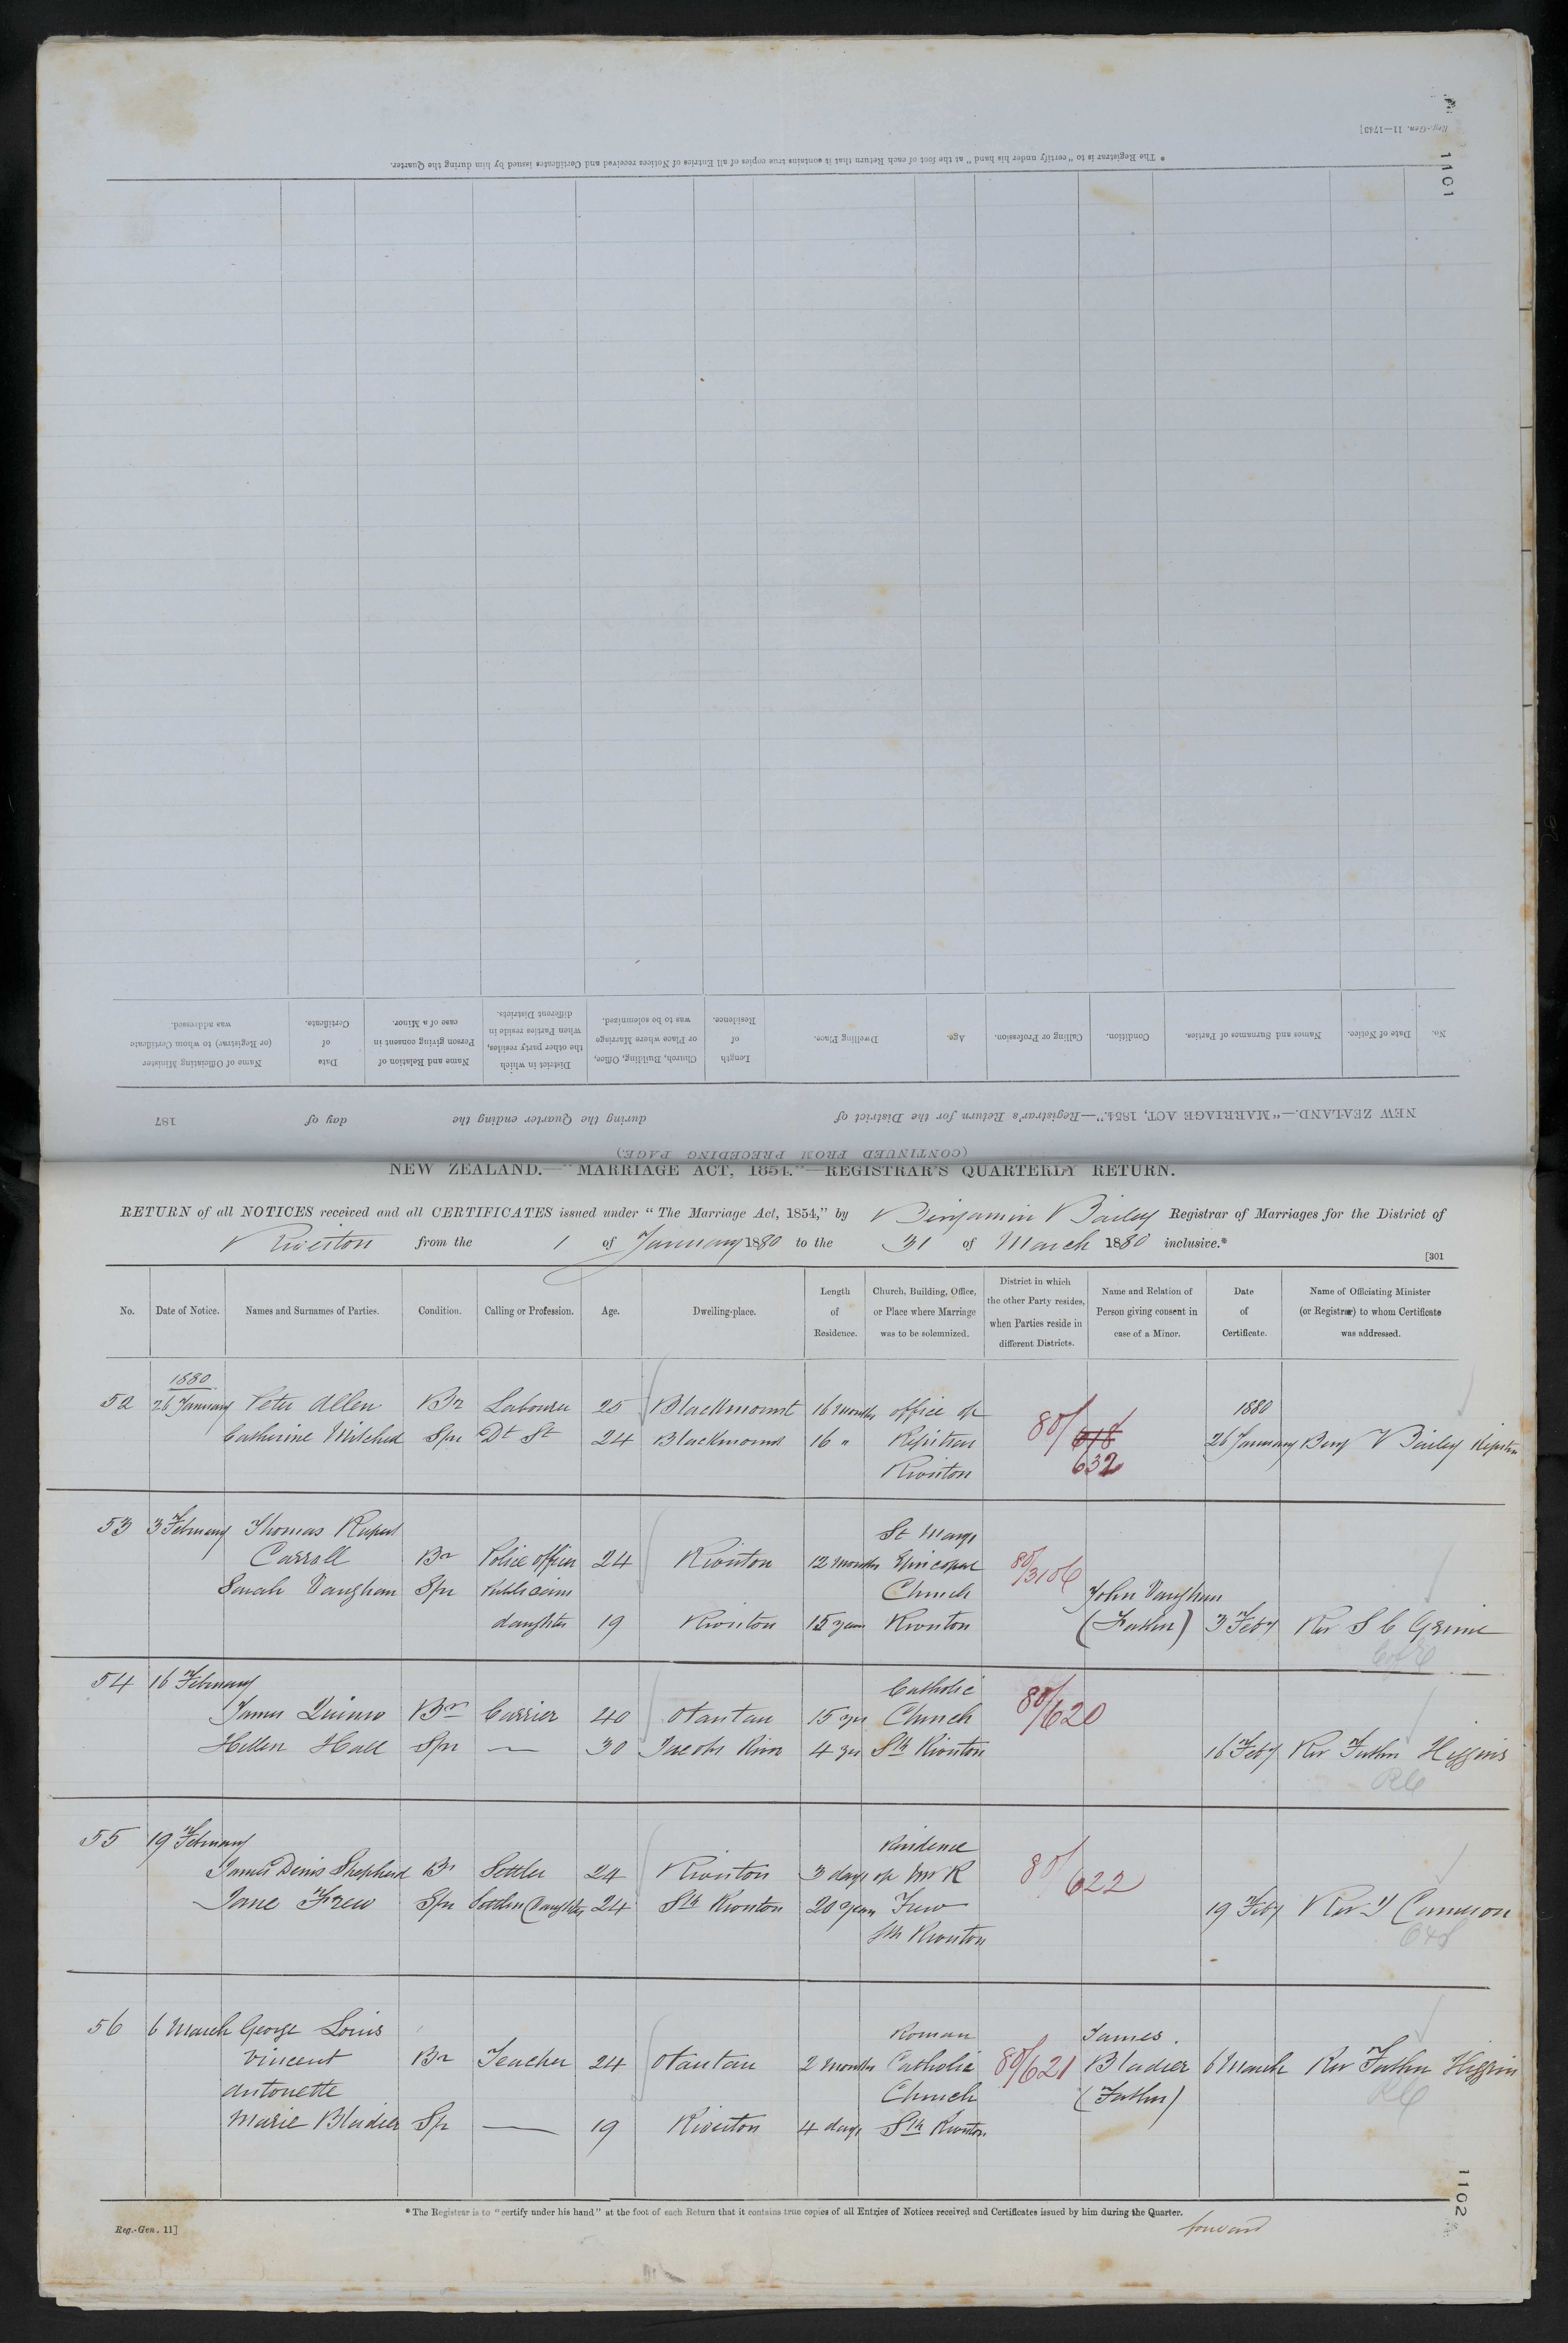 Reg.-Gen. 11—1743]
1101
* The Registrar is to "certify under his hand" at the foot of each Return that it contains true copies of all Entries of Notices received and Certificates issued by him during the Quarter.
No.
Date of Notice.
Names and Surnames of Parties.
Condition.
Calling or Profession.
Age.
Dwelling Place.
Length
of
Residence.
Church, Building, Office,
or Place where Marriage
was to be solemnized.
District in which
the other party resides,
when Parties reside in
different Districts.
Name and Relation of
Person giving consent in
case of a Minor.
Date
of
Certificate.
Name of Officiating Minister
(or Registrar) to whom Certificate
was addressed.
NEW ZEALAND.—"MARRIAGE ACT, 1854."—Registrar's Return for the District of during the Quarter ending the day of 187
(CONTINUED FROM PRECEDING PAGE)
NEW ZEALAND.—"MARRIAGE ACT, 1854."—REGISTRAR'S QUARTERLY RETURN.
RETURN of all NOTICES received and all CERTIFICATES issued under "The Marriage Act, 1854," by Benjamin Bailey Registrar of Marriages for the District of
Riverton from the 1 of January 1880 to the 31 of March 1880 inclusive.*
[301
No.
Date of Notice.
Names and Surnames of Parties.
Condition.
Calling or Profession.
Age.
Dwelling-place.
Length
of
Residence.
Church, Building, Office,
or Place where Marriage
was to be solemnized.
District in which
the other Party resides,
when Parties reside in
different Districts.
Name and Relation of
Person giving consent in
case of a Minor.
Date
of
Certificate.
Name of Officiating Minister
(or Registrar) to whom Certificate
was addressed.
1880 1880
52 26 January Peter Allen Br Labourer 25 Blackmount 16 months office of 80/618
Catherine Mitchel Spr Dt St 24 Blackmount 16 " Registrar 632 26 January Benj Bailey Registrar
Riverton
53 3 February Thomas Rupert St Marys
Carroll Br Police officer 24 Riverton 12 months Episcopal 80/3106
Sarah Vaughan Spr Publicans Church John Vaughan
daughter 19 Riverton 15 years Riverton (Father) 3 Feby Rev S C Grime
C of E
54 16 February Catholic
James Quinn Br Carrier 40 Otautau 15 yrs Church 80/620
Hellen Hall Spr — 30 Jacobs River 4 yrs Sth Riverton 16 Feby Rev Father Higgins
RC
55 19 February Residence
James Denis Shepherd Br Settler 24 Riverton 3 days of Mr R 80/622
Jane Frew Spr Settlers Daughter 24 Sth Riverton 20 years Frew 19 Feby Rev J Cameron
Sth Riverton
56 6 March George Louis Roman James
Vincent Br Teacher 24 Otautau 2 months Catholic 80/621 Bladier 6 March Rev Father Higgins
Antonette Church (Father) RC
Marie Bladier Sp — 19 Riverton 4 days Sth Riverton
* The Registrar is to "certify under his hand" at the foot of each Return that it contains true copies of all Entries of Notices received and Certificates issued by him during the Quarter.
Reg.-Gen. 11]
forward
1102